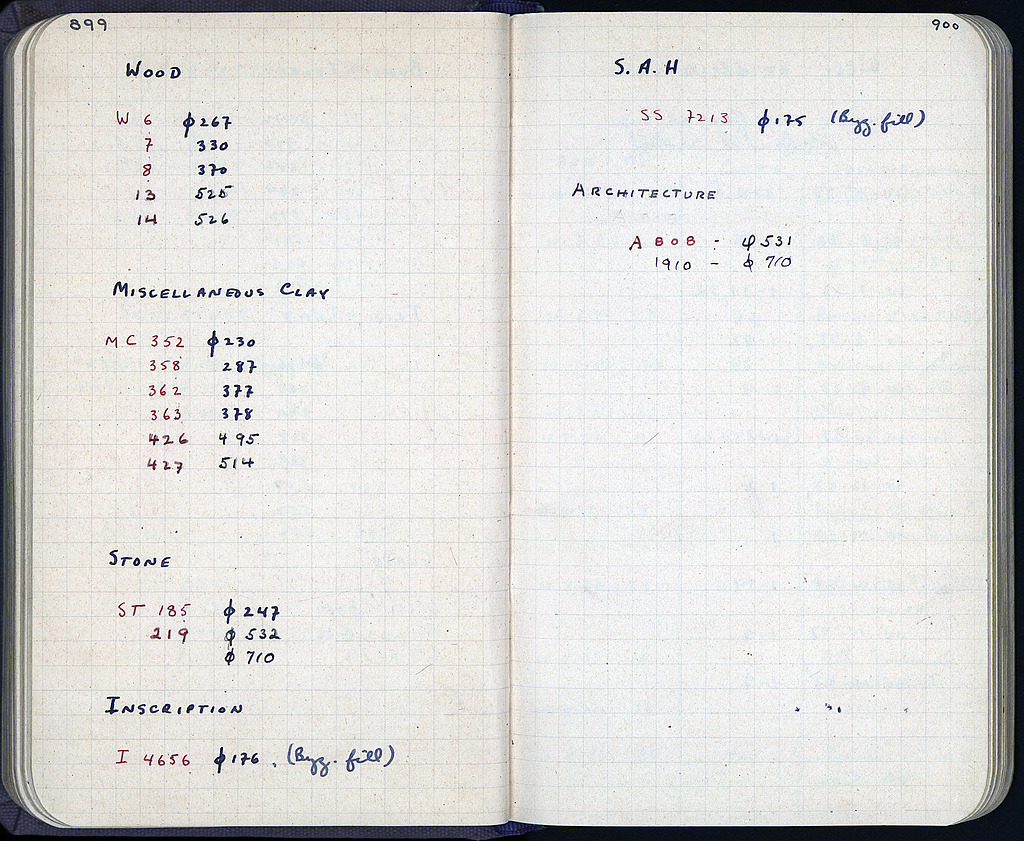 899
WOOD
W 6 ϕ267
7 330
8 370
13 525
14 526
MISCELLANEOUS CLAY
MC 352 ϕ230
358 287
362 377
363 378
426 495
427 514
STONE
ST 185 ϕ247
219 ϕ 532
ϕ 710
INSCRIPTION
I 4656 ϕ176. (Byz. fill)
900
S. A. H
SS 7213 ϕ175 (Byz. fill)
ARCHITECTURE
A 808 - ϕ531
1910 - ϕ 710